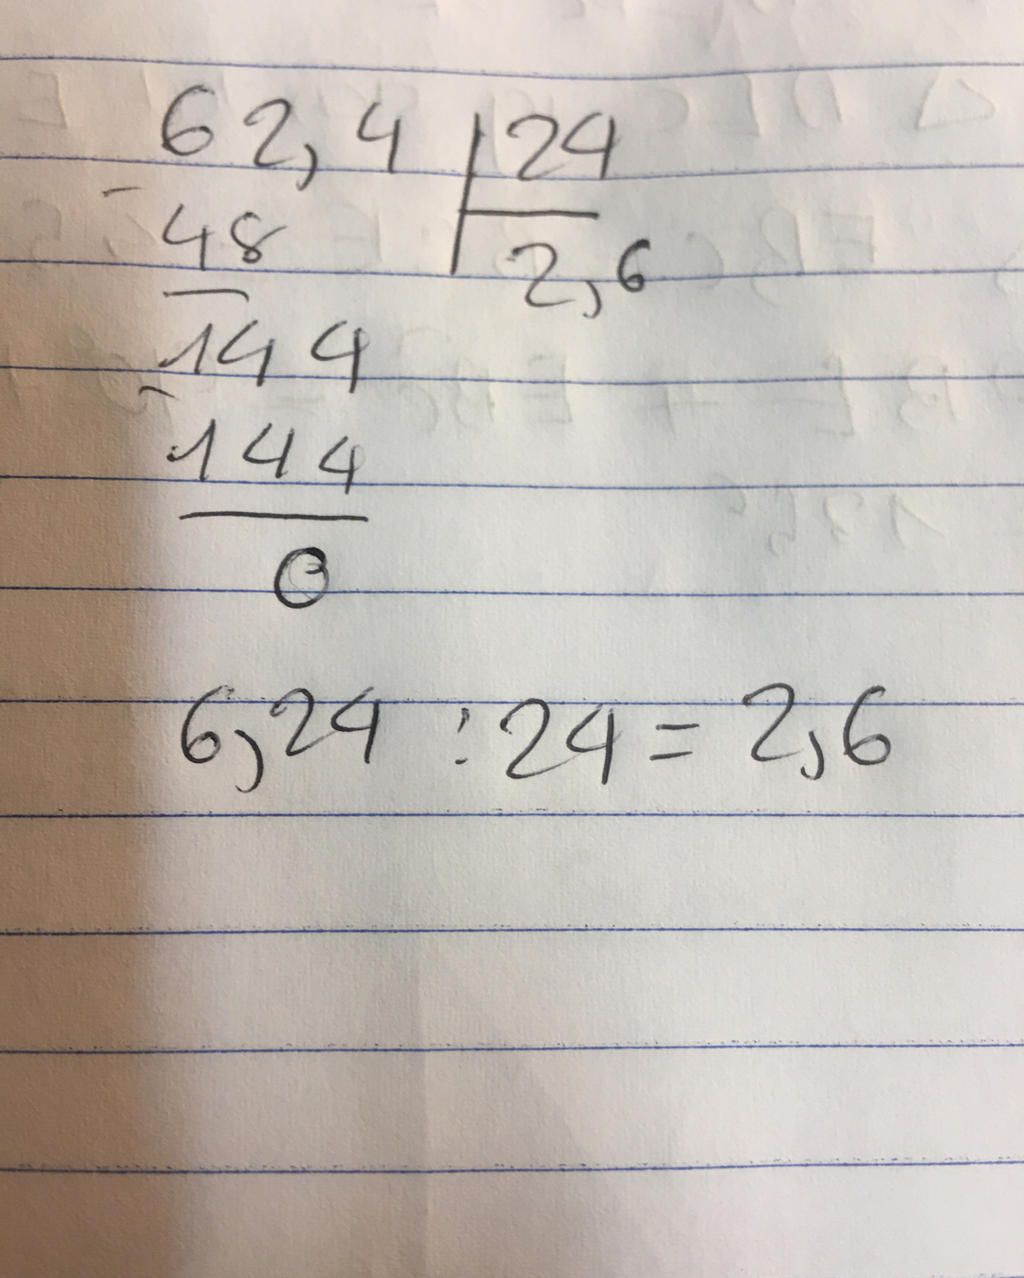 62,4 | 24
- 48 2,6
144
- 144
0
6,24 : 24 = 2,6